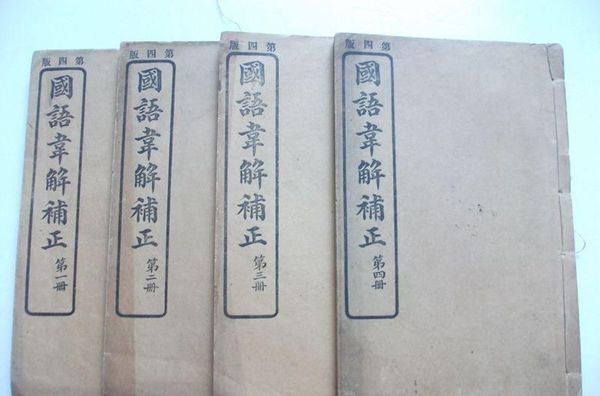 第四版
國語韋解補正
第一册
第四版
國語韋解補正
第二册
第四版
國語韋解補正
第三册
第四版
國語韋解補正
第四册